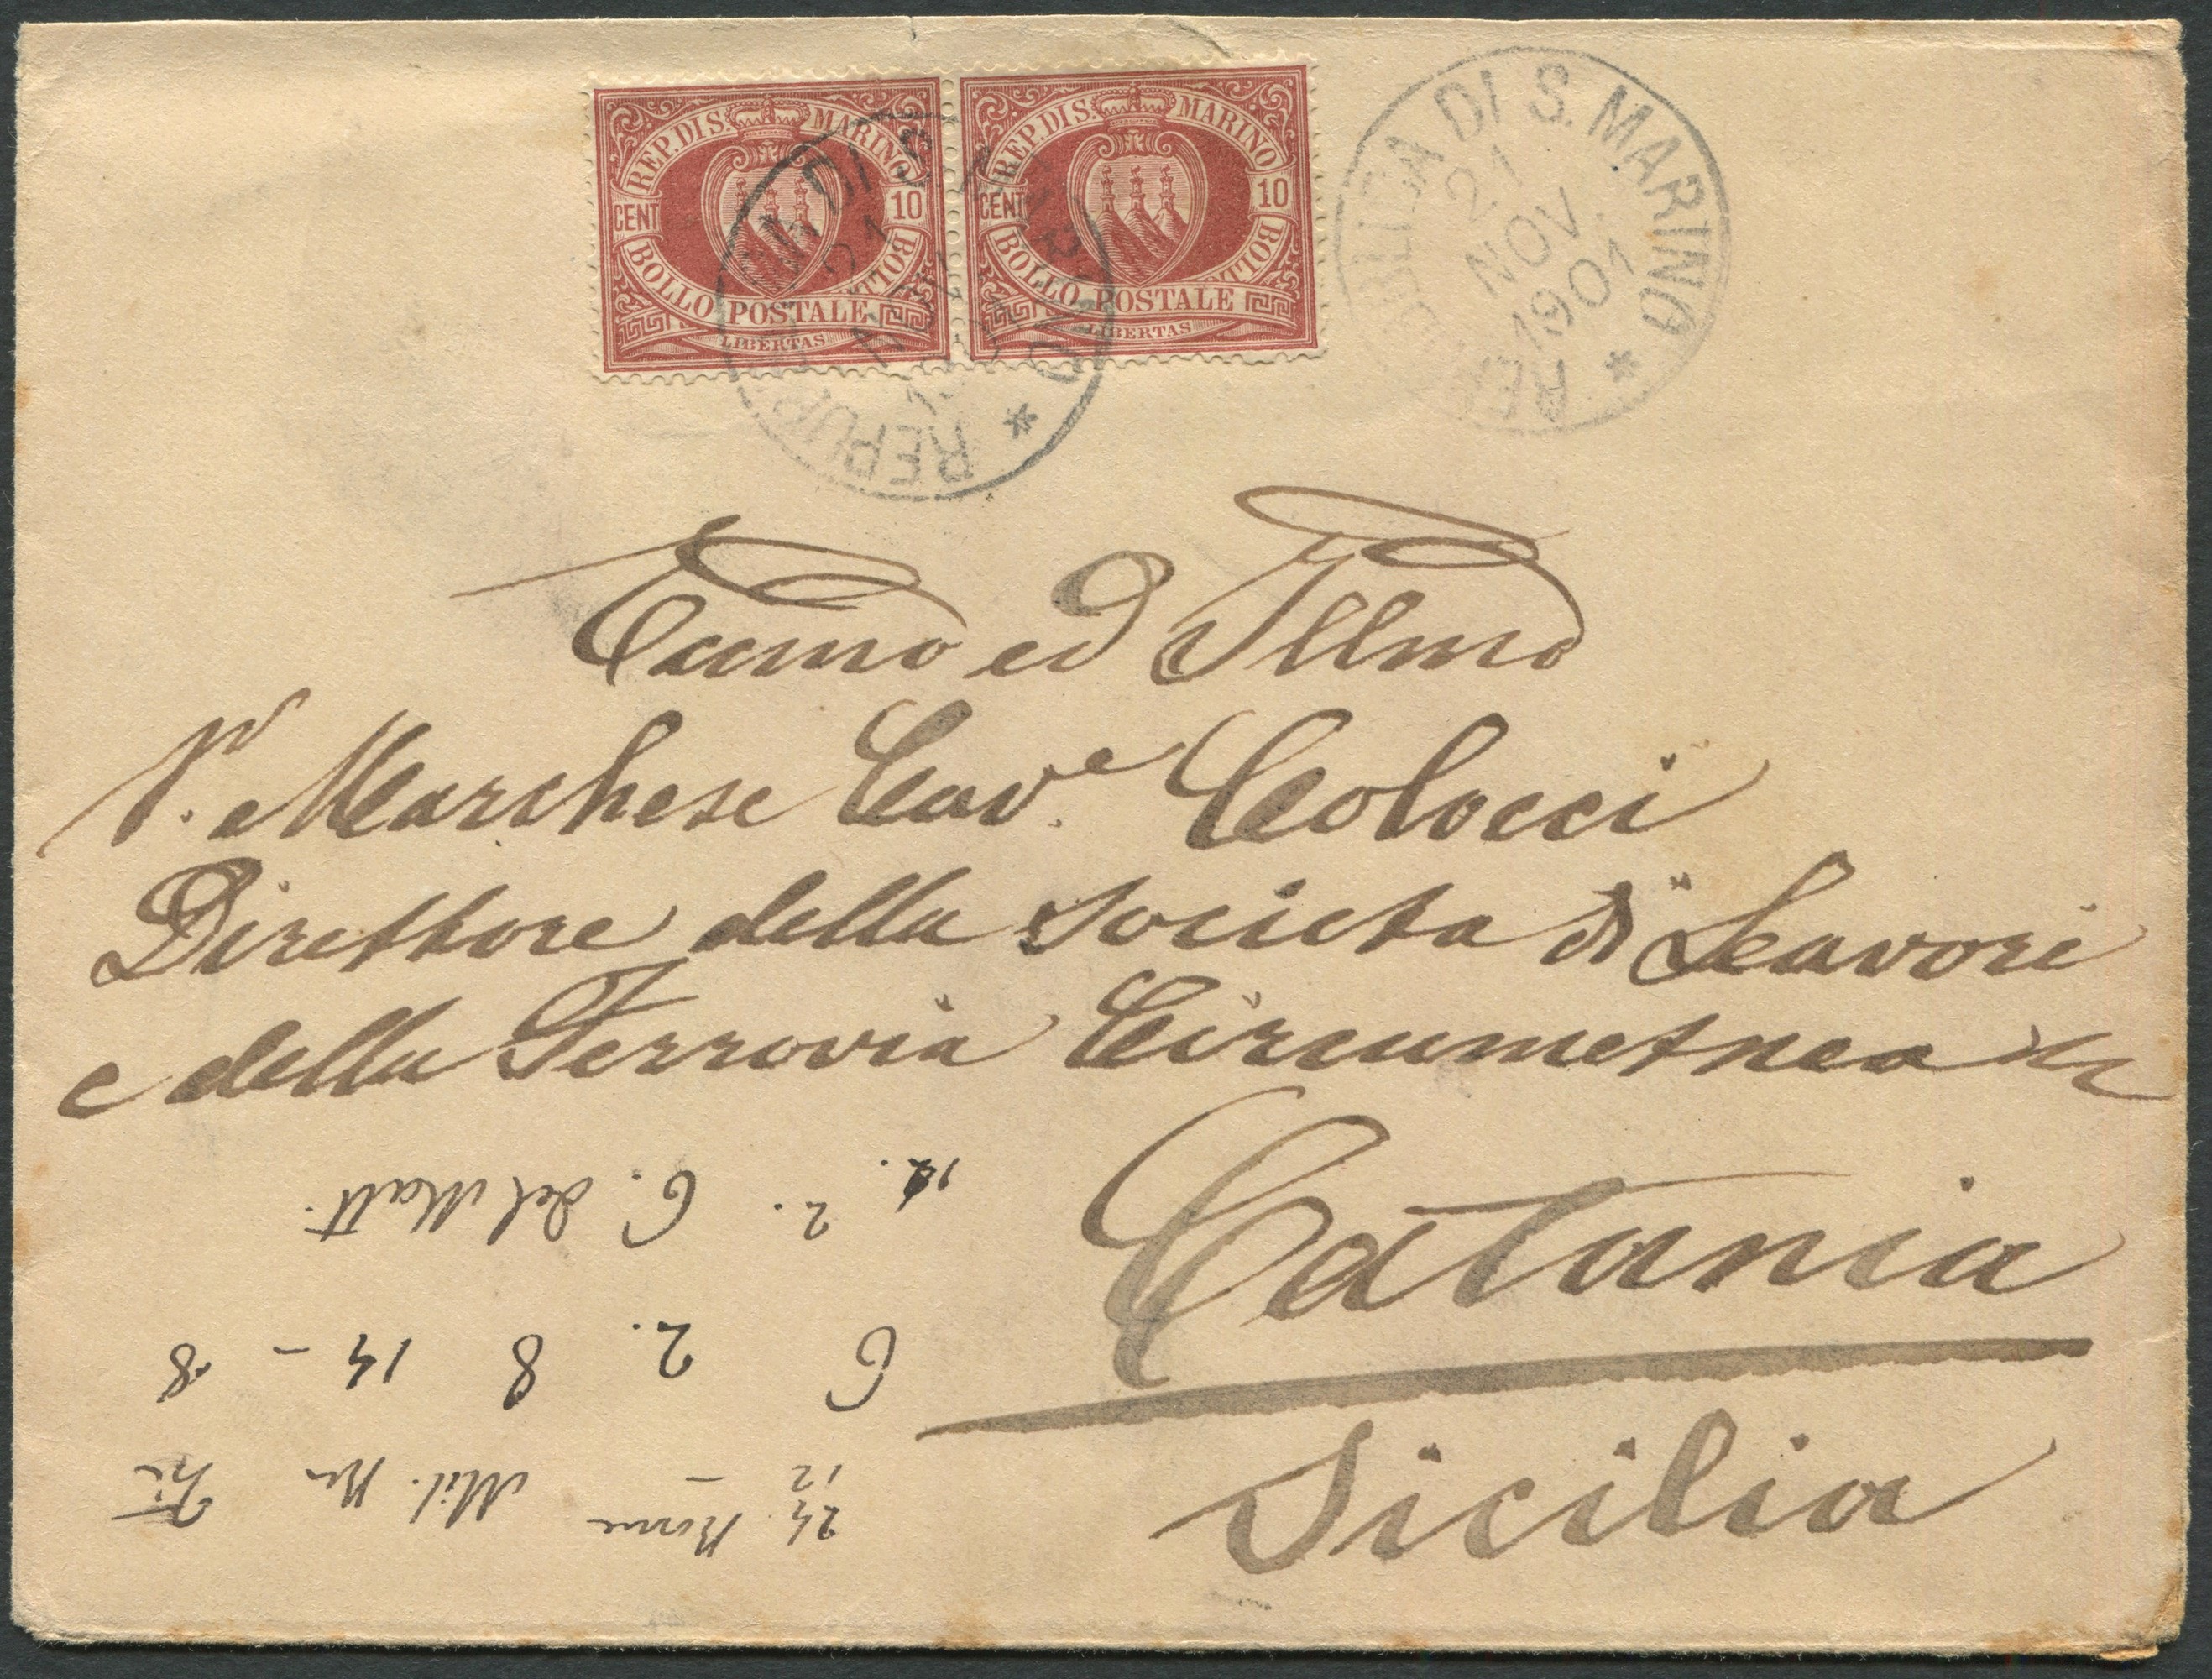 REP. DI S. MARINO
CENT 10
BOLLO POSTALE
LIBERTAS
REP. DI S. MARINO
CENT 10
BOLLO POSTALE
LIBERTAS
REPUBBLICA DI S. MARINO
21 NOV
REPUBBLICA DI S. MARINO
21
NOV.
1901
Eccmo ed Illmo
Marchese Cav.e Colocci
Direttore della Societa di Lavori
e della Ferrovia Circumetnea
Catania
Sicilia
24
12
Mil.
6 2. 8 14 - 8
2. 6. del Matt.